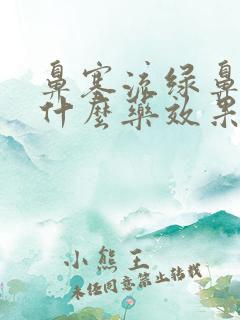 鼻塞流绿鼻
什麼药效果
小熊王
未经同意禁止转载